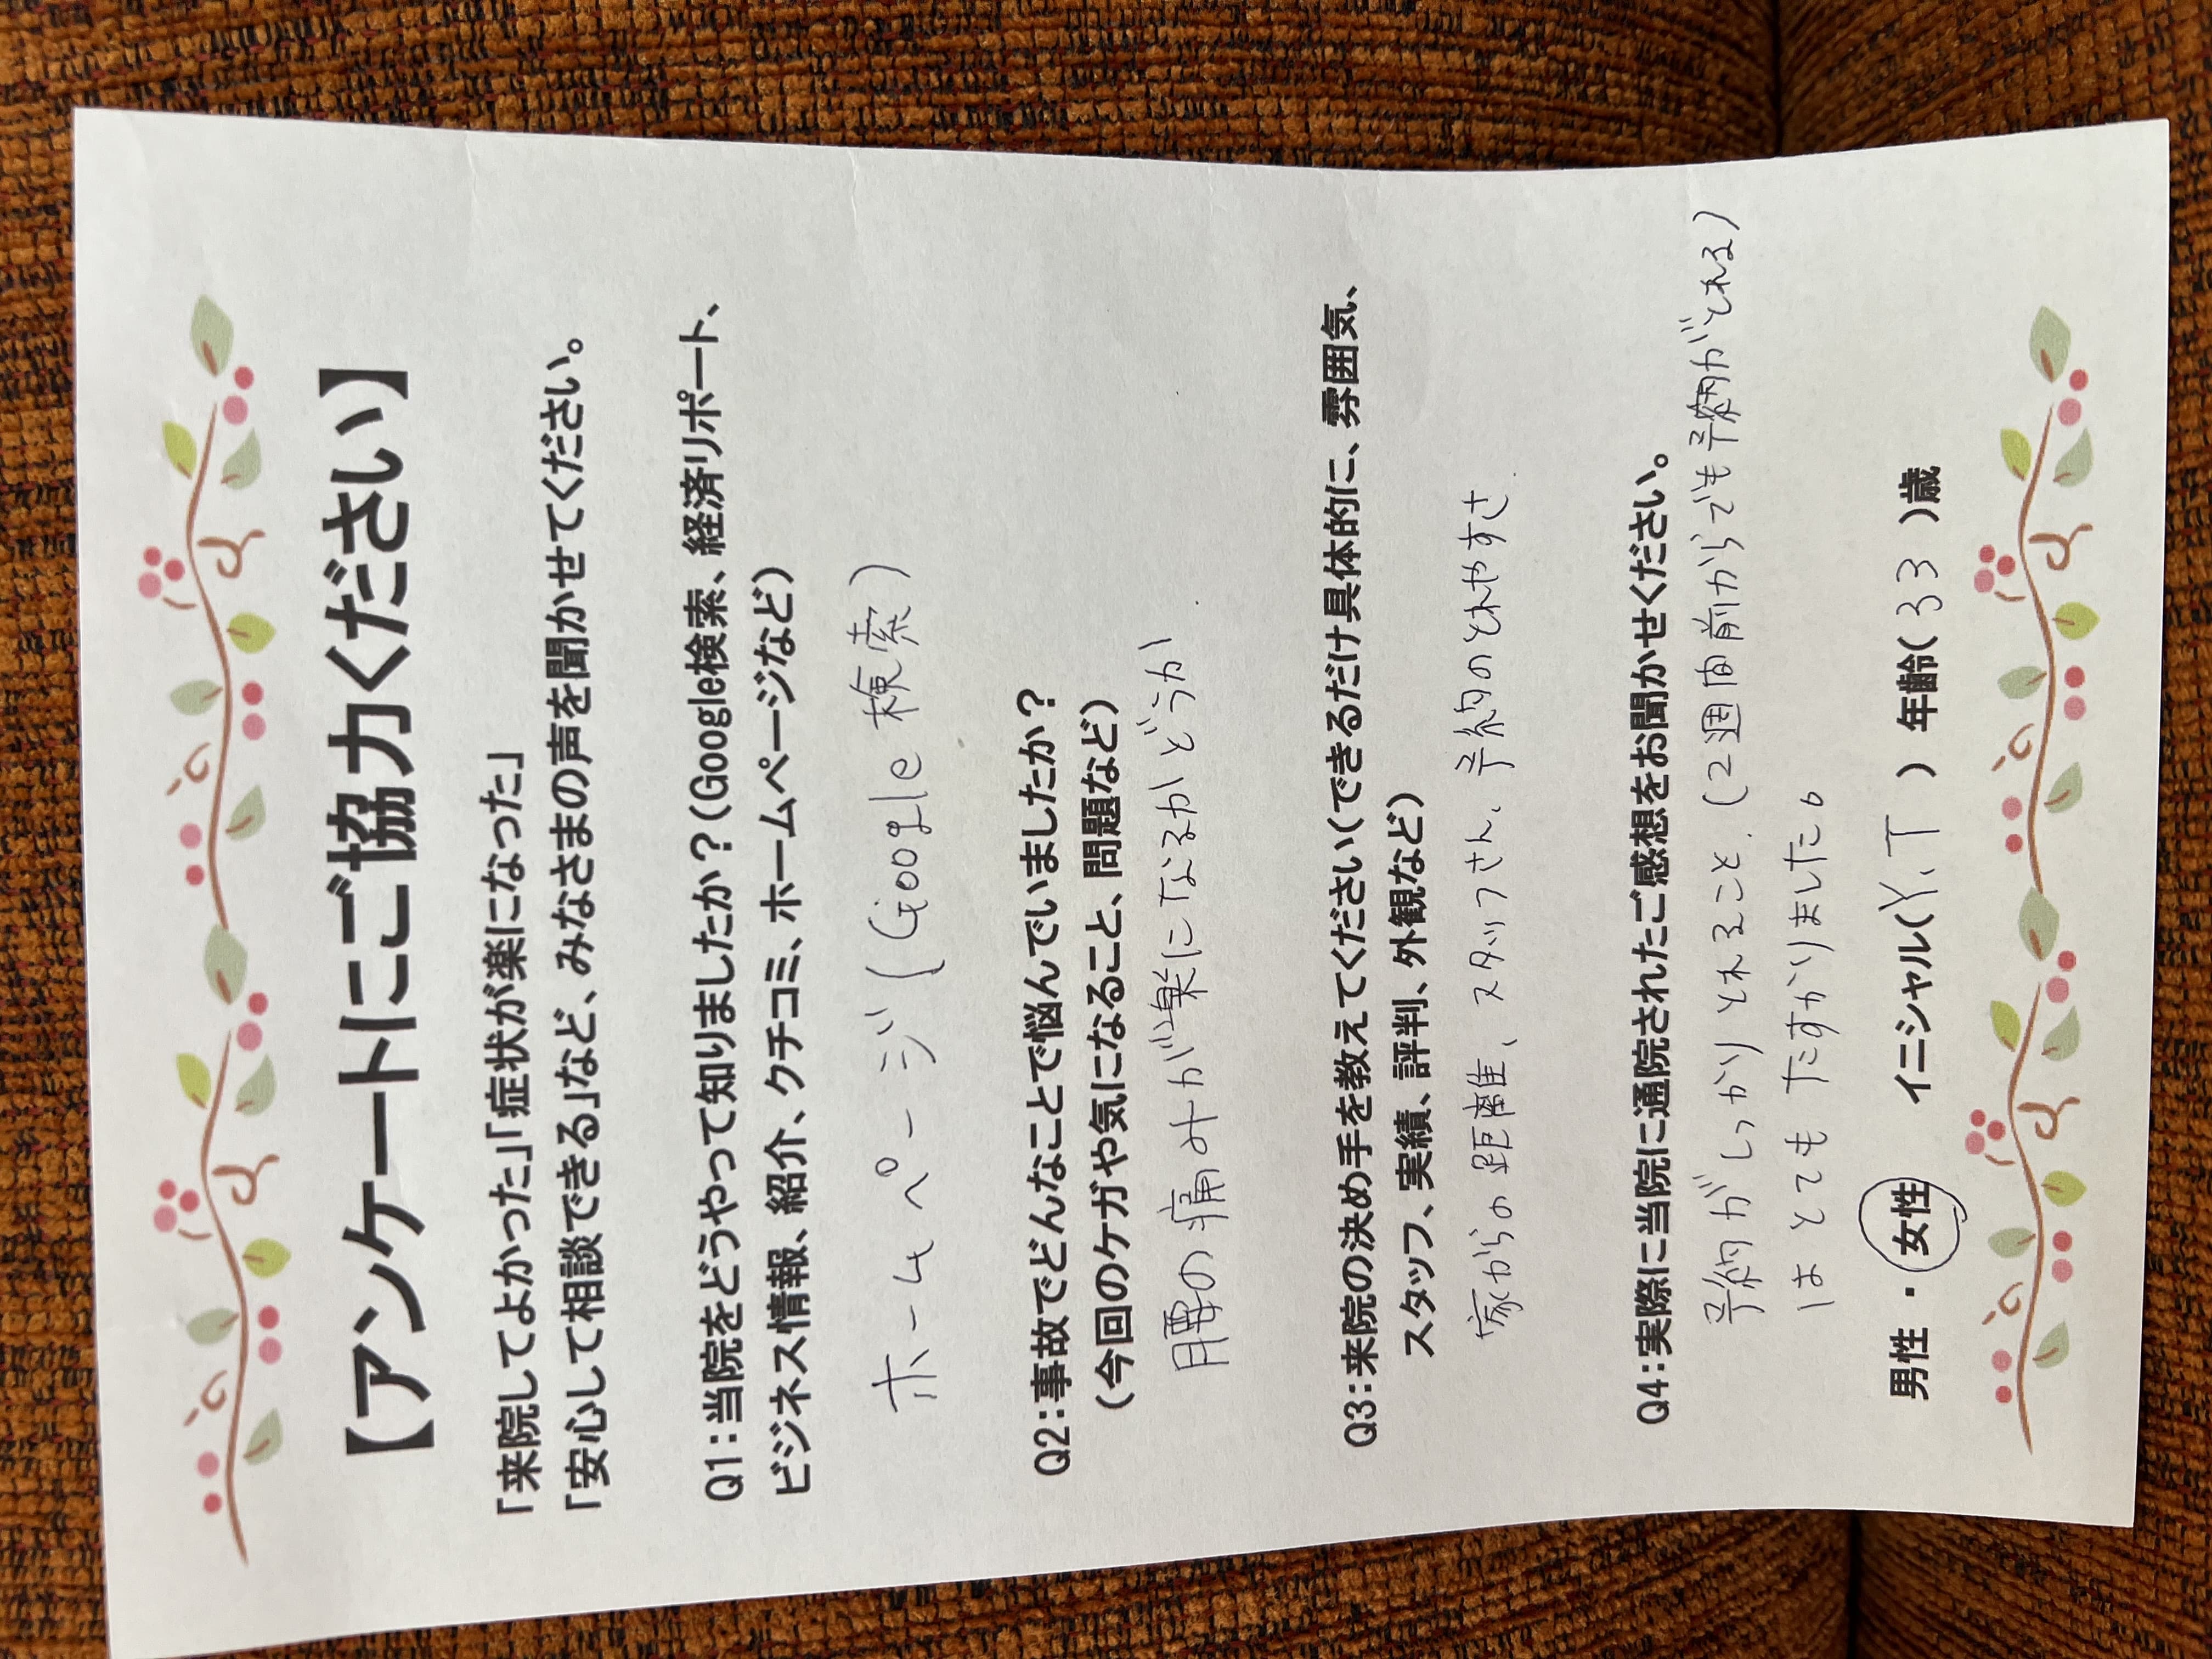 【アンケートにご協力ください】
「来院してよかった」「症状が楽になった」
「安心して相談できる」など、みなさまの声を聞かせてください。
Q1：当院をどうやって知りましたか？（Google検索、経済リポート、
ビジネス情報、紹介、クチコミ、ホームページなど）
ホームページ（Google 検索）
Q2：事故でどんなことで悩んでいましたか？
（今回のケガや気になること、問題など）
腰の痛みが楽になるかどうか
Q3：来院の決め手を教えてください（できるだけ具体的に、雰囲気、
スタッフ、実績、評判、外観など）
家からの距離、スタッフさん、予約のとれやすさ
Q4：実際に当院に通院されたご感想をお聞かせください。
予約がしっかりとれること、（2週間前からでも予約がとれる）
はとてもたすかりました。
男性 ・ 女性 イニシャル（Y.T ） 年齢（ 33 ）歳